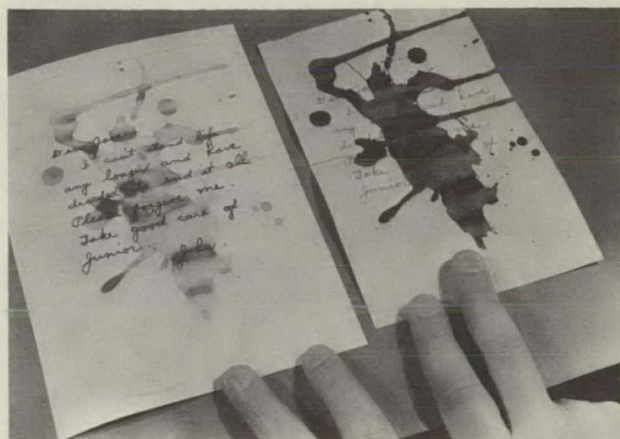 Dear Jane
I can't stand life
any longer and have
decided to end it all
Please forgive me.
Take good care of
Junior. John.
and have
any
of
Take
Junior